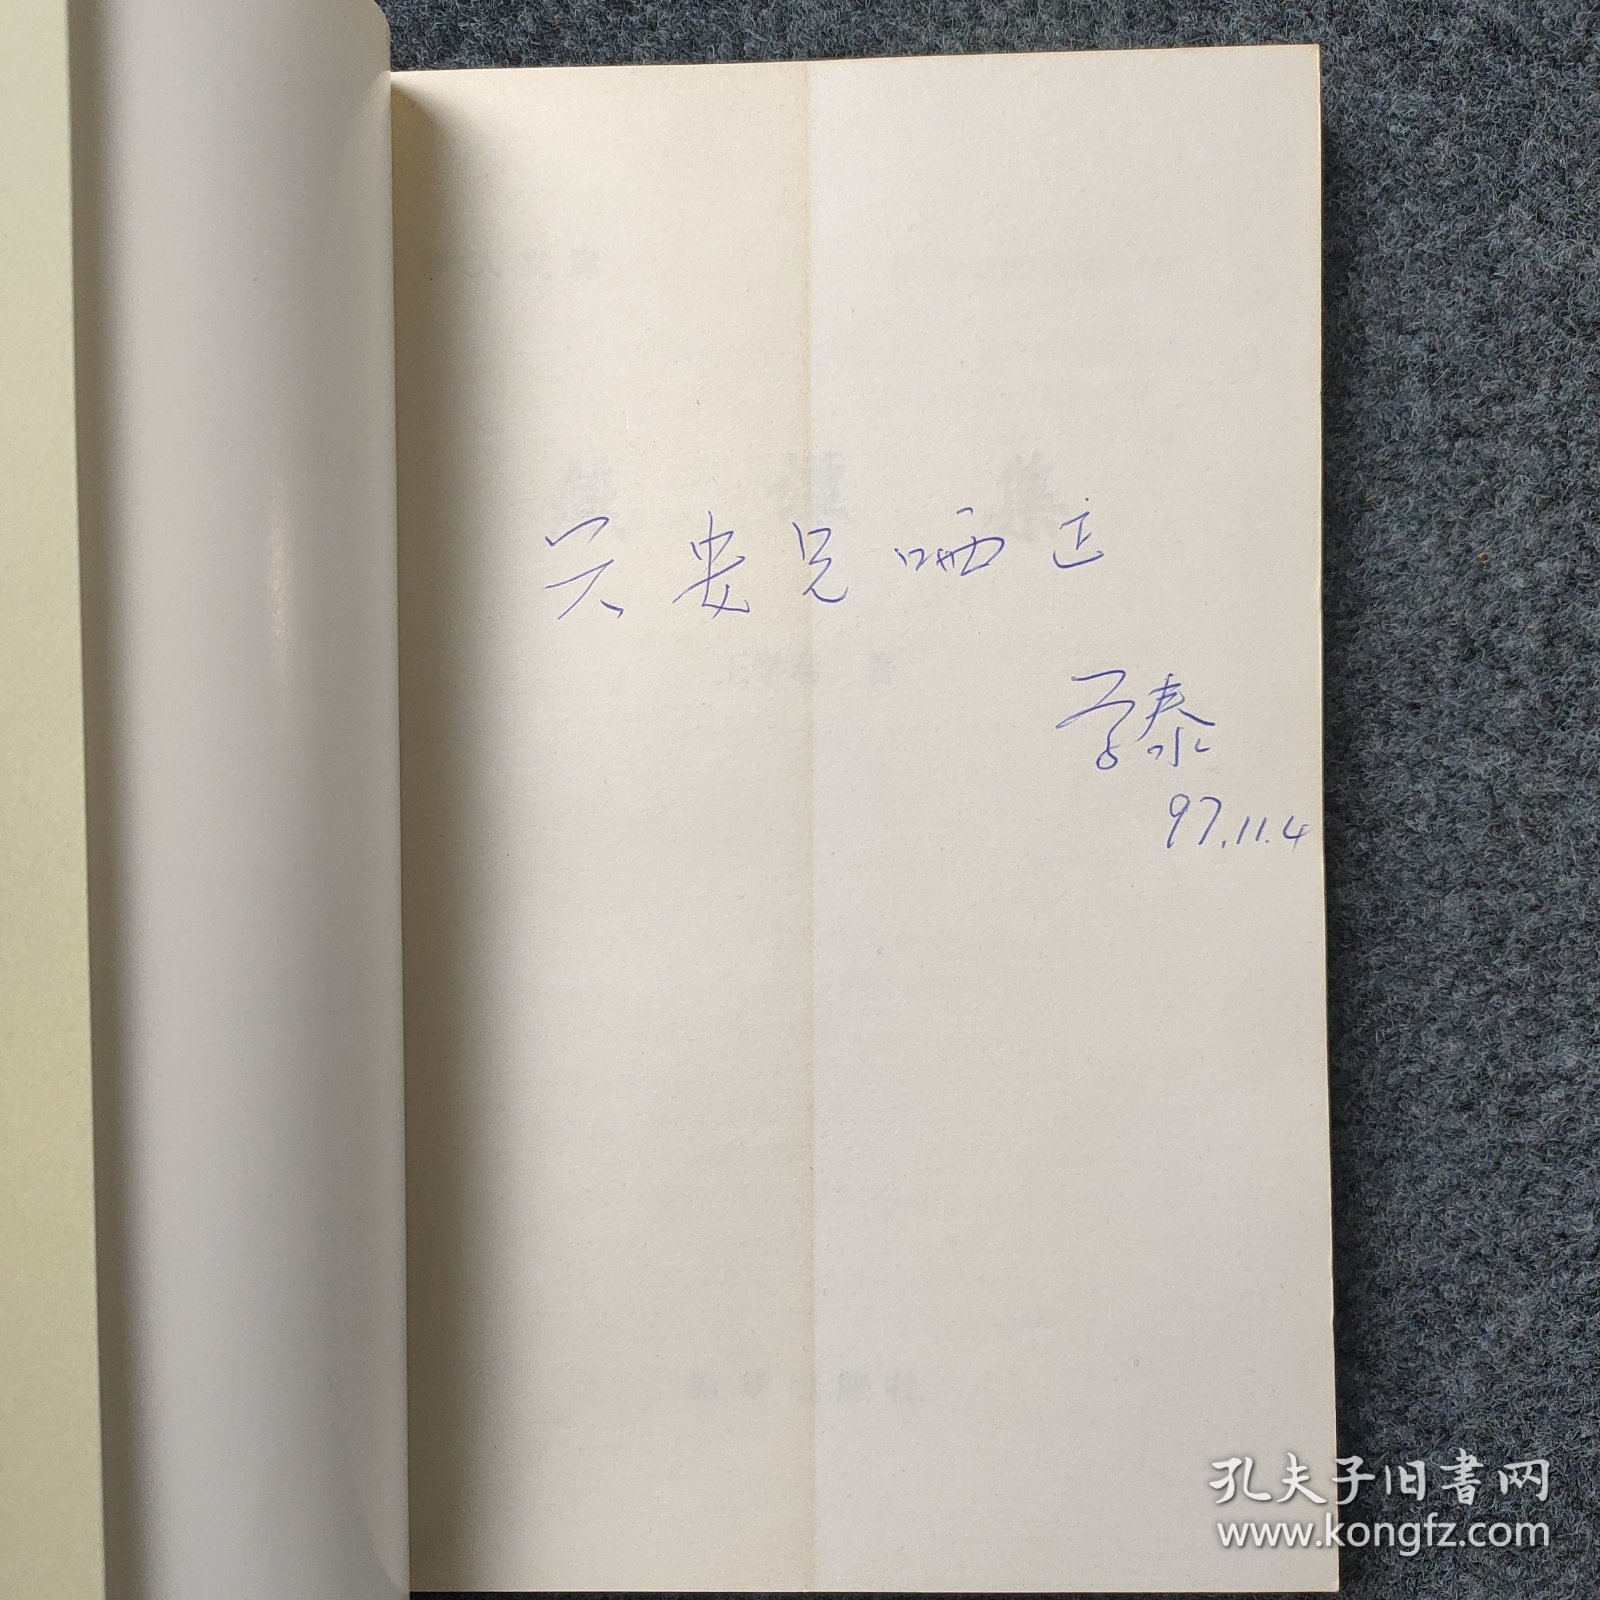 兴安兄哂正
学泰
97.11.4
孔夫子旧书网
www.kongfz.com